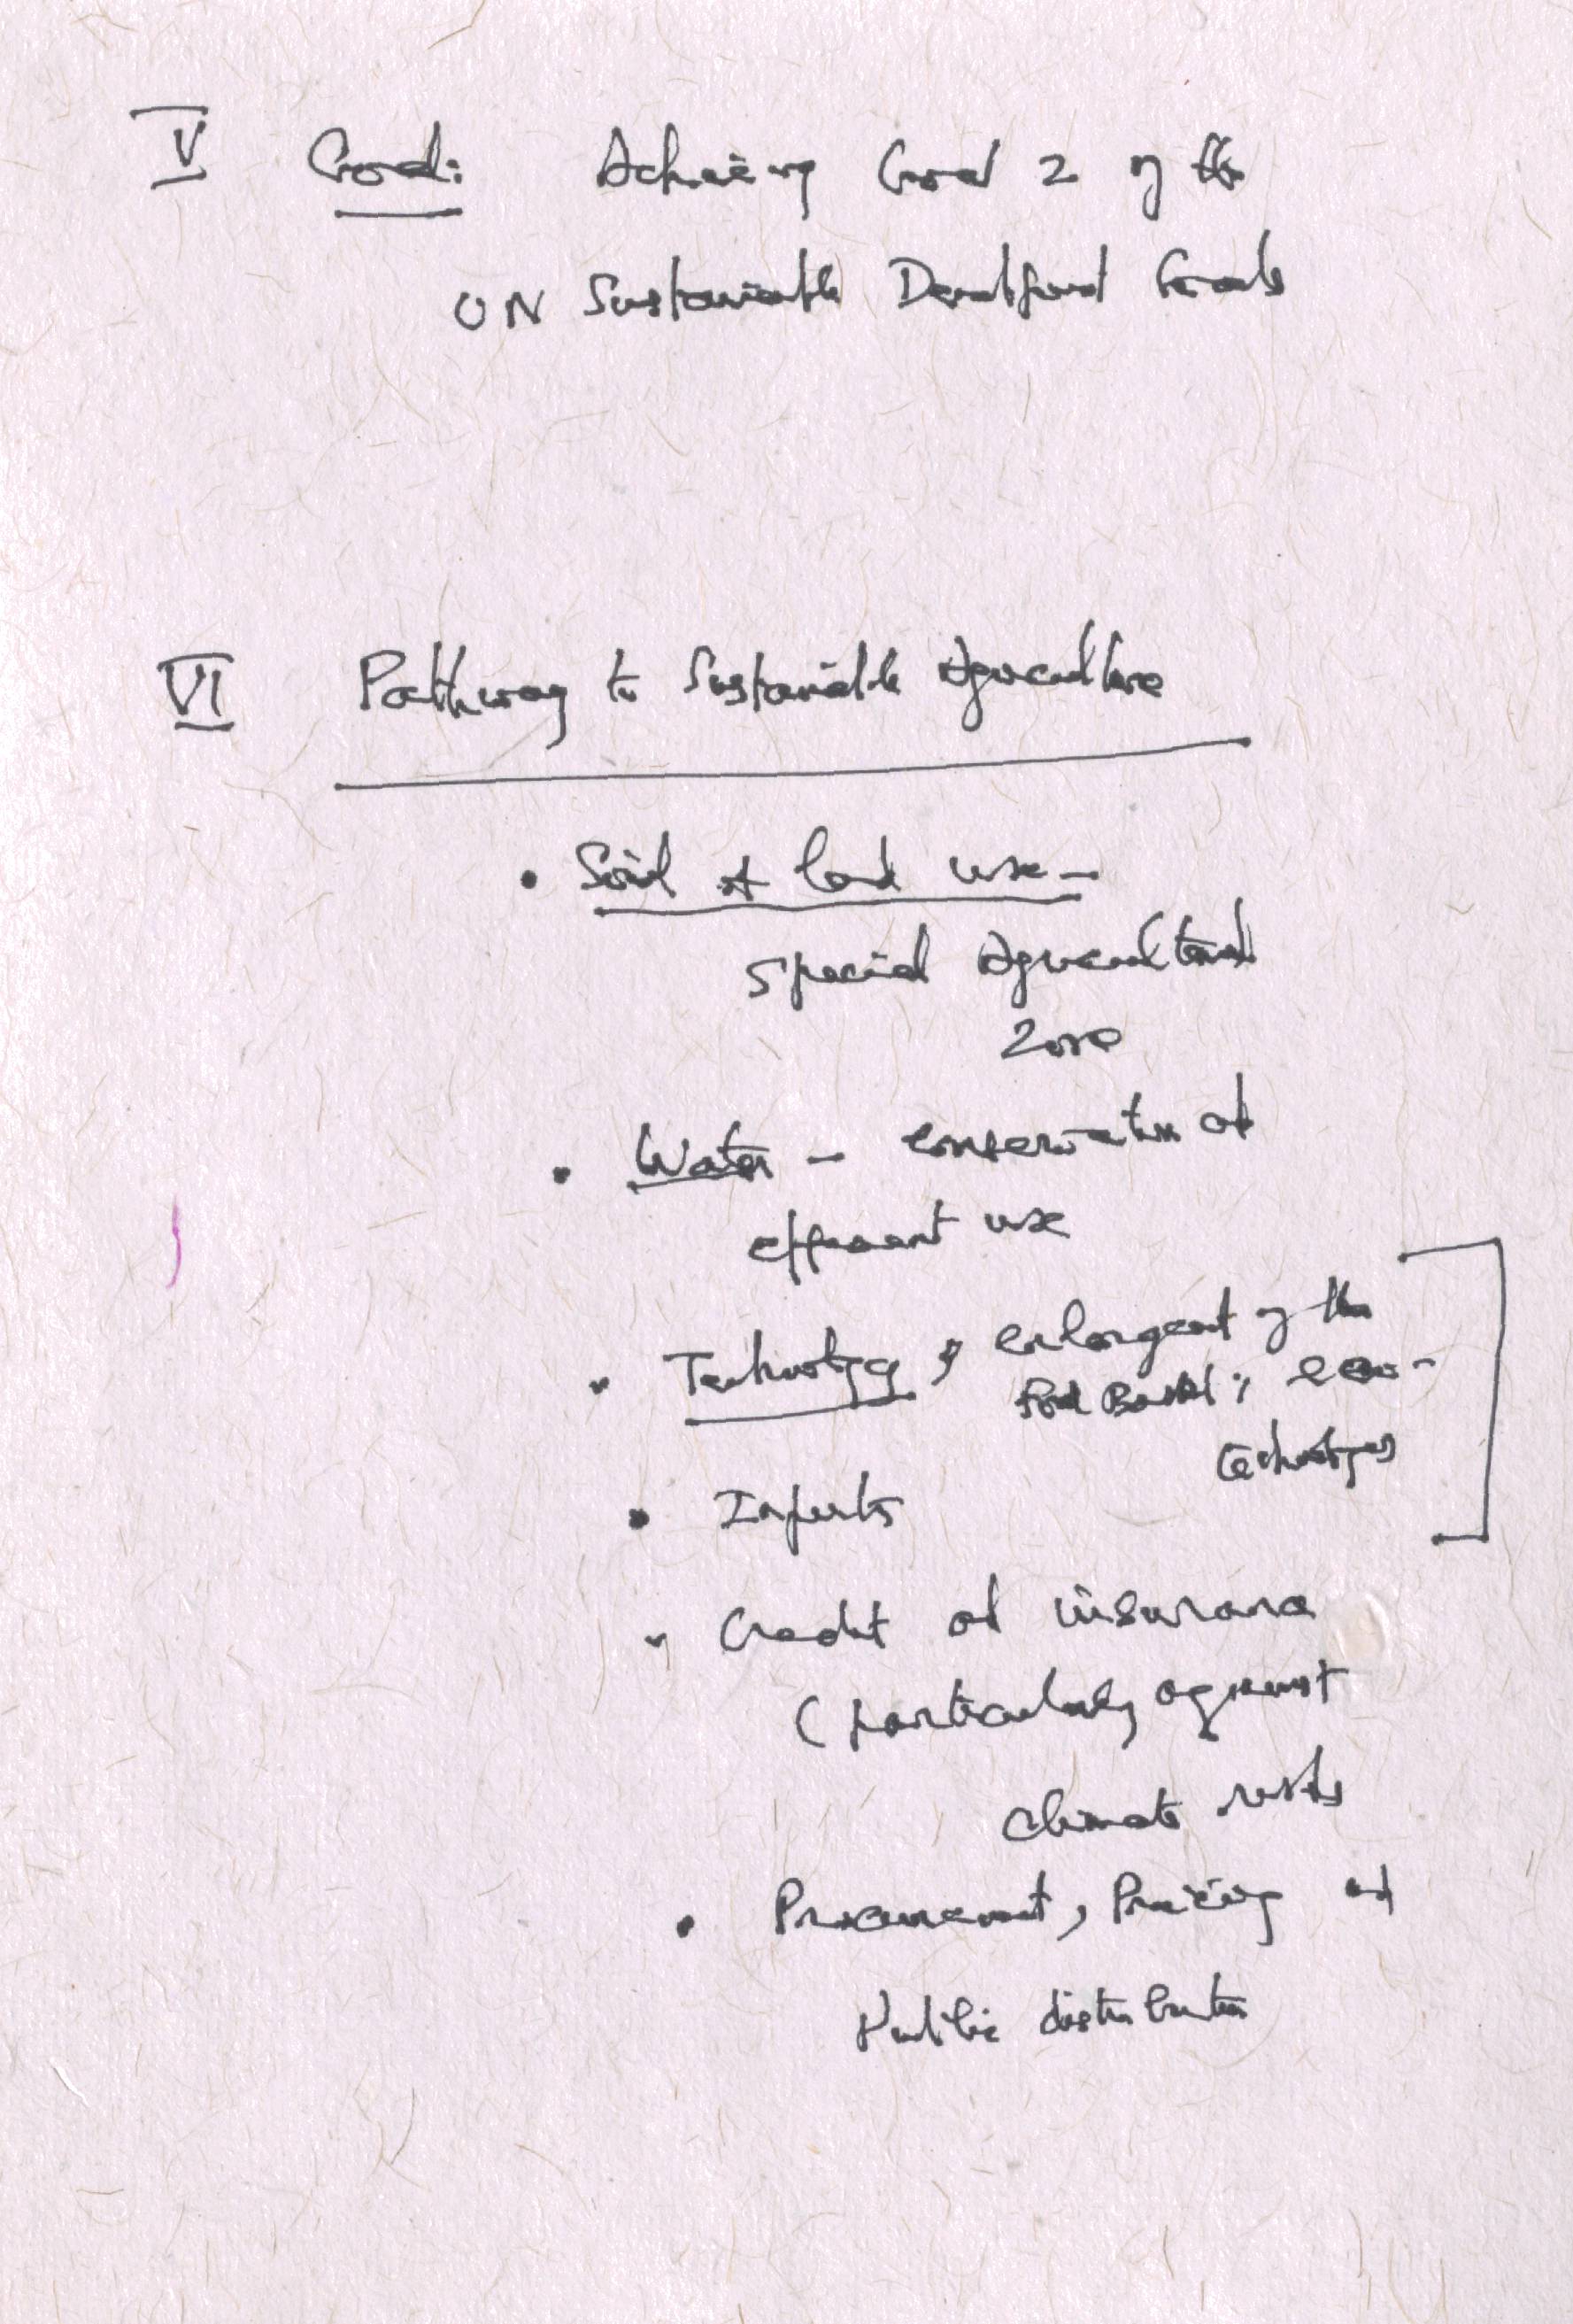 V Goal: Achieving Goal 2 of the
UN Sustainable Development Goals
VI Pathway to Sustainable Agriculture
• Soil & land use -
Special Agricultural
Zone
• Water - conservation and
efficient use
• Technology, enlargement of the
Food Basket; eco-
technologies
• Inputs
• Credit and insurance
(particularly against
climate risks
• Procurement, Pricing and
Public distribution